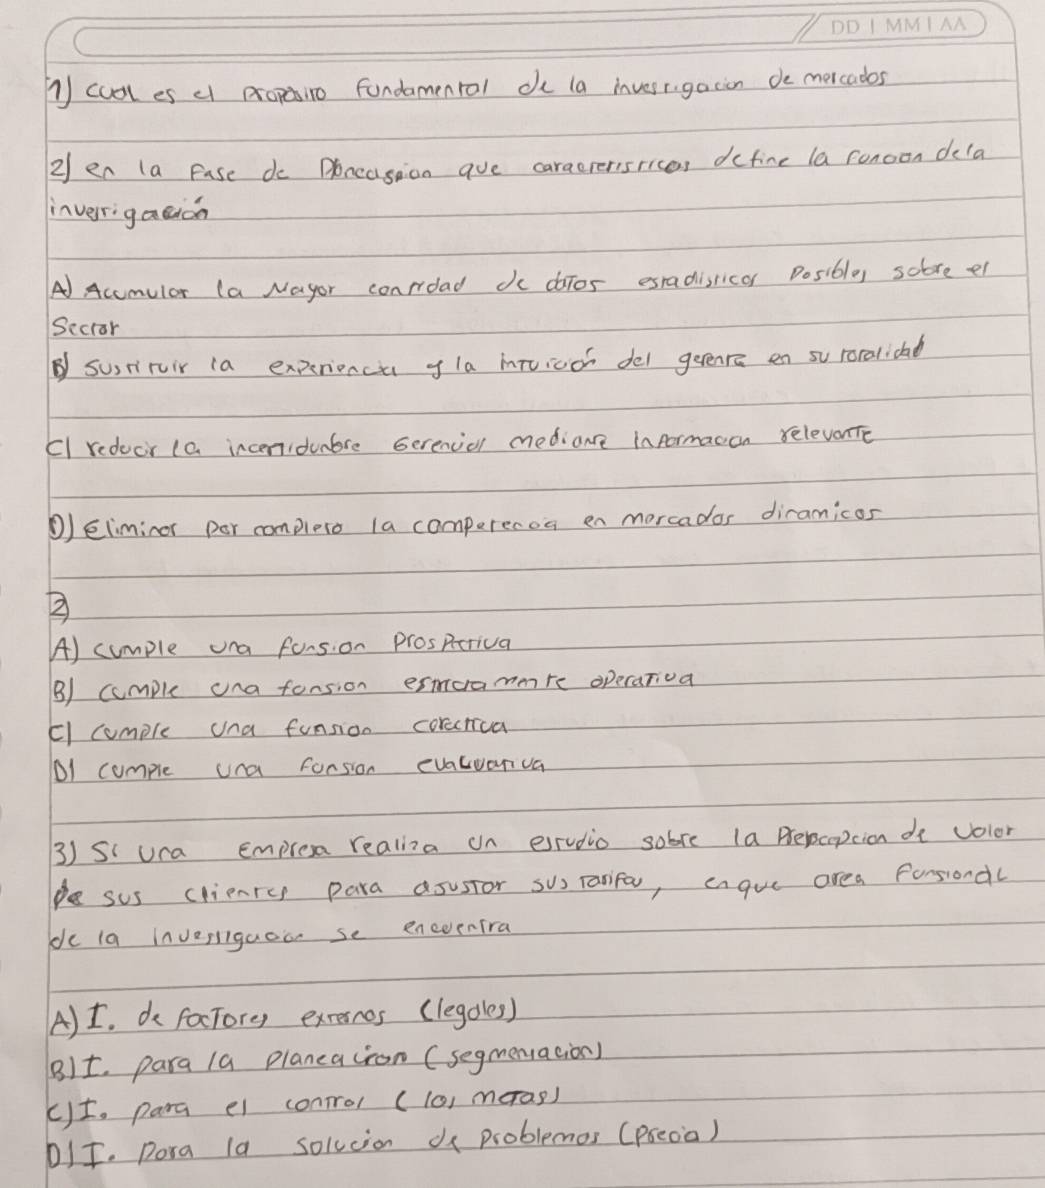 DD | MM | AA
1) cual es el proposito fundamental de la investigacion de mercados
2) en la fase de que caracteristicas define la funcion dela
investigación
A) Acumular la Mayor cantidad de datos estadisticos Posibles sobre el
Sector
B) sustituir la experiencia y la intuición del gerente en su totalidad
C) reducir la incertidunbre Gerencial mediante informacion relevante
D) eliminar por completo la competencia en mercados dinamicos
2)
A) cumple una funsion Prospectiva
B) cumple una fonsion operativa
C) cumple una funsion corectiva
D) cumple una funsion evaluativa
3) Si una empresa realiza un estudio sobre la de valor
de sus clientes para asustar sus tarifas, enque area funsional
de la investigacion se encuentra
A) I. de factores externos (legales)
B) I. para la planeacion (segmentacion)
C) I. para el control (los metas)
D) I. para la solucion de problemas (precio)